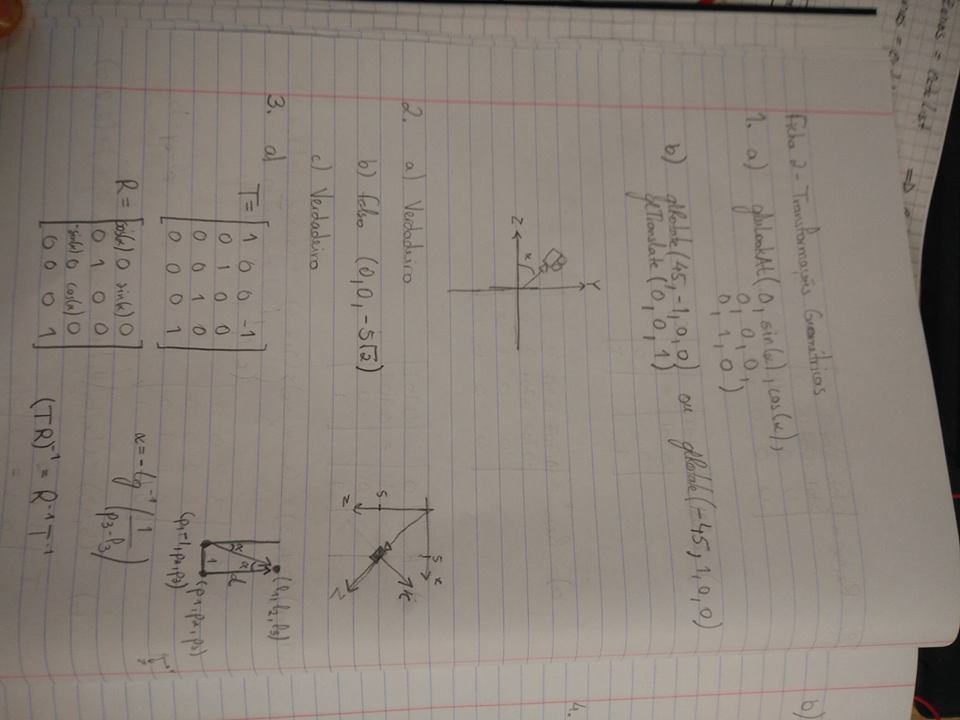 = ⇒
Ficha 2 - Transformações Geométricas
1. a) gluLookAt(0, sin(x), cos(x),
0, 0, 0,
0, 1, 0)
b) glRotate(45, -1, 0, 0) ou glRotate(-45, 1, 0, 0)
glTranslate(0, 0, 1)
Y
x
Z
2. a) Verdadeiro
b) Falso (0, 0, -5√2)
c) Verdadeiro
5 x
x
5
z
Z
3. a)
T = [1 0 0 -1
0 1 0 0
0 0 1 0
0 0 0 1]
(l1, l2, l3)
α α d
1 (p1, p2, p3)
(p1-1, p2, p3)
R = [cos(α) 0 sin(α) 0
0 1 0 0
-sin(α) 0 cos(α) 0
0 0 0 1]
α = -tg⁻¹(1/(p3-l3))
(TR)⁻¹ = R⁻¹T⁻¹
=
b)
4.